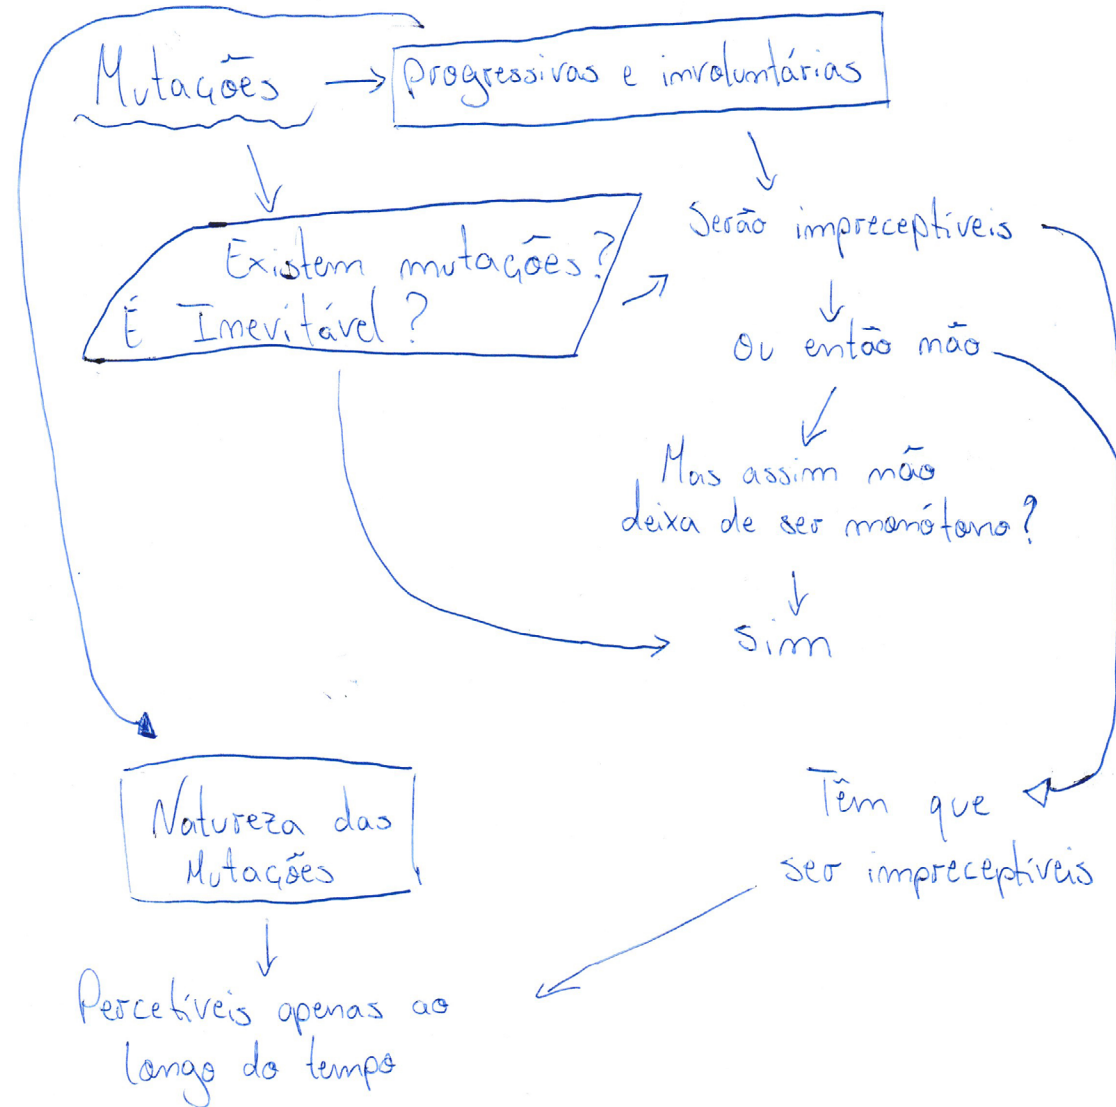 Mutações
Progressivas e involuntárias
Existem mutações?
É Inevitável?
Serão impreceptíveis
Ou então não
Mas assim não
deixa de ser monótono?
Sim
Natureza das
Mutações
Têm que
ser impreceptíveis
Percetíveis apenas ao
longo do tempo